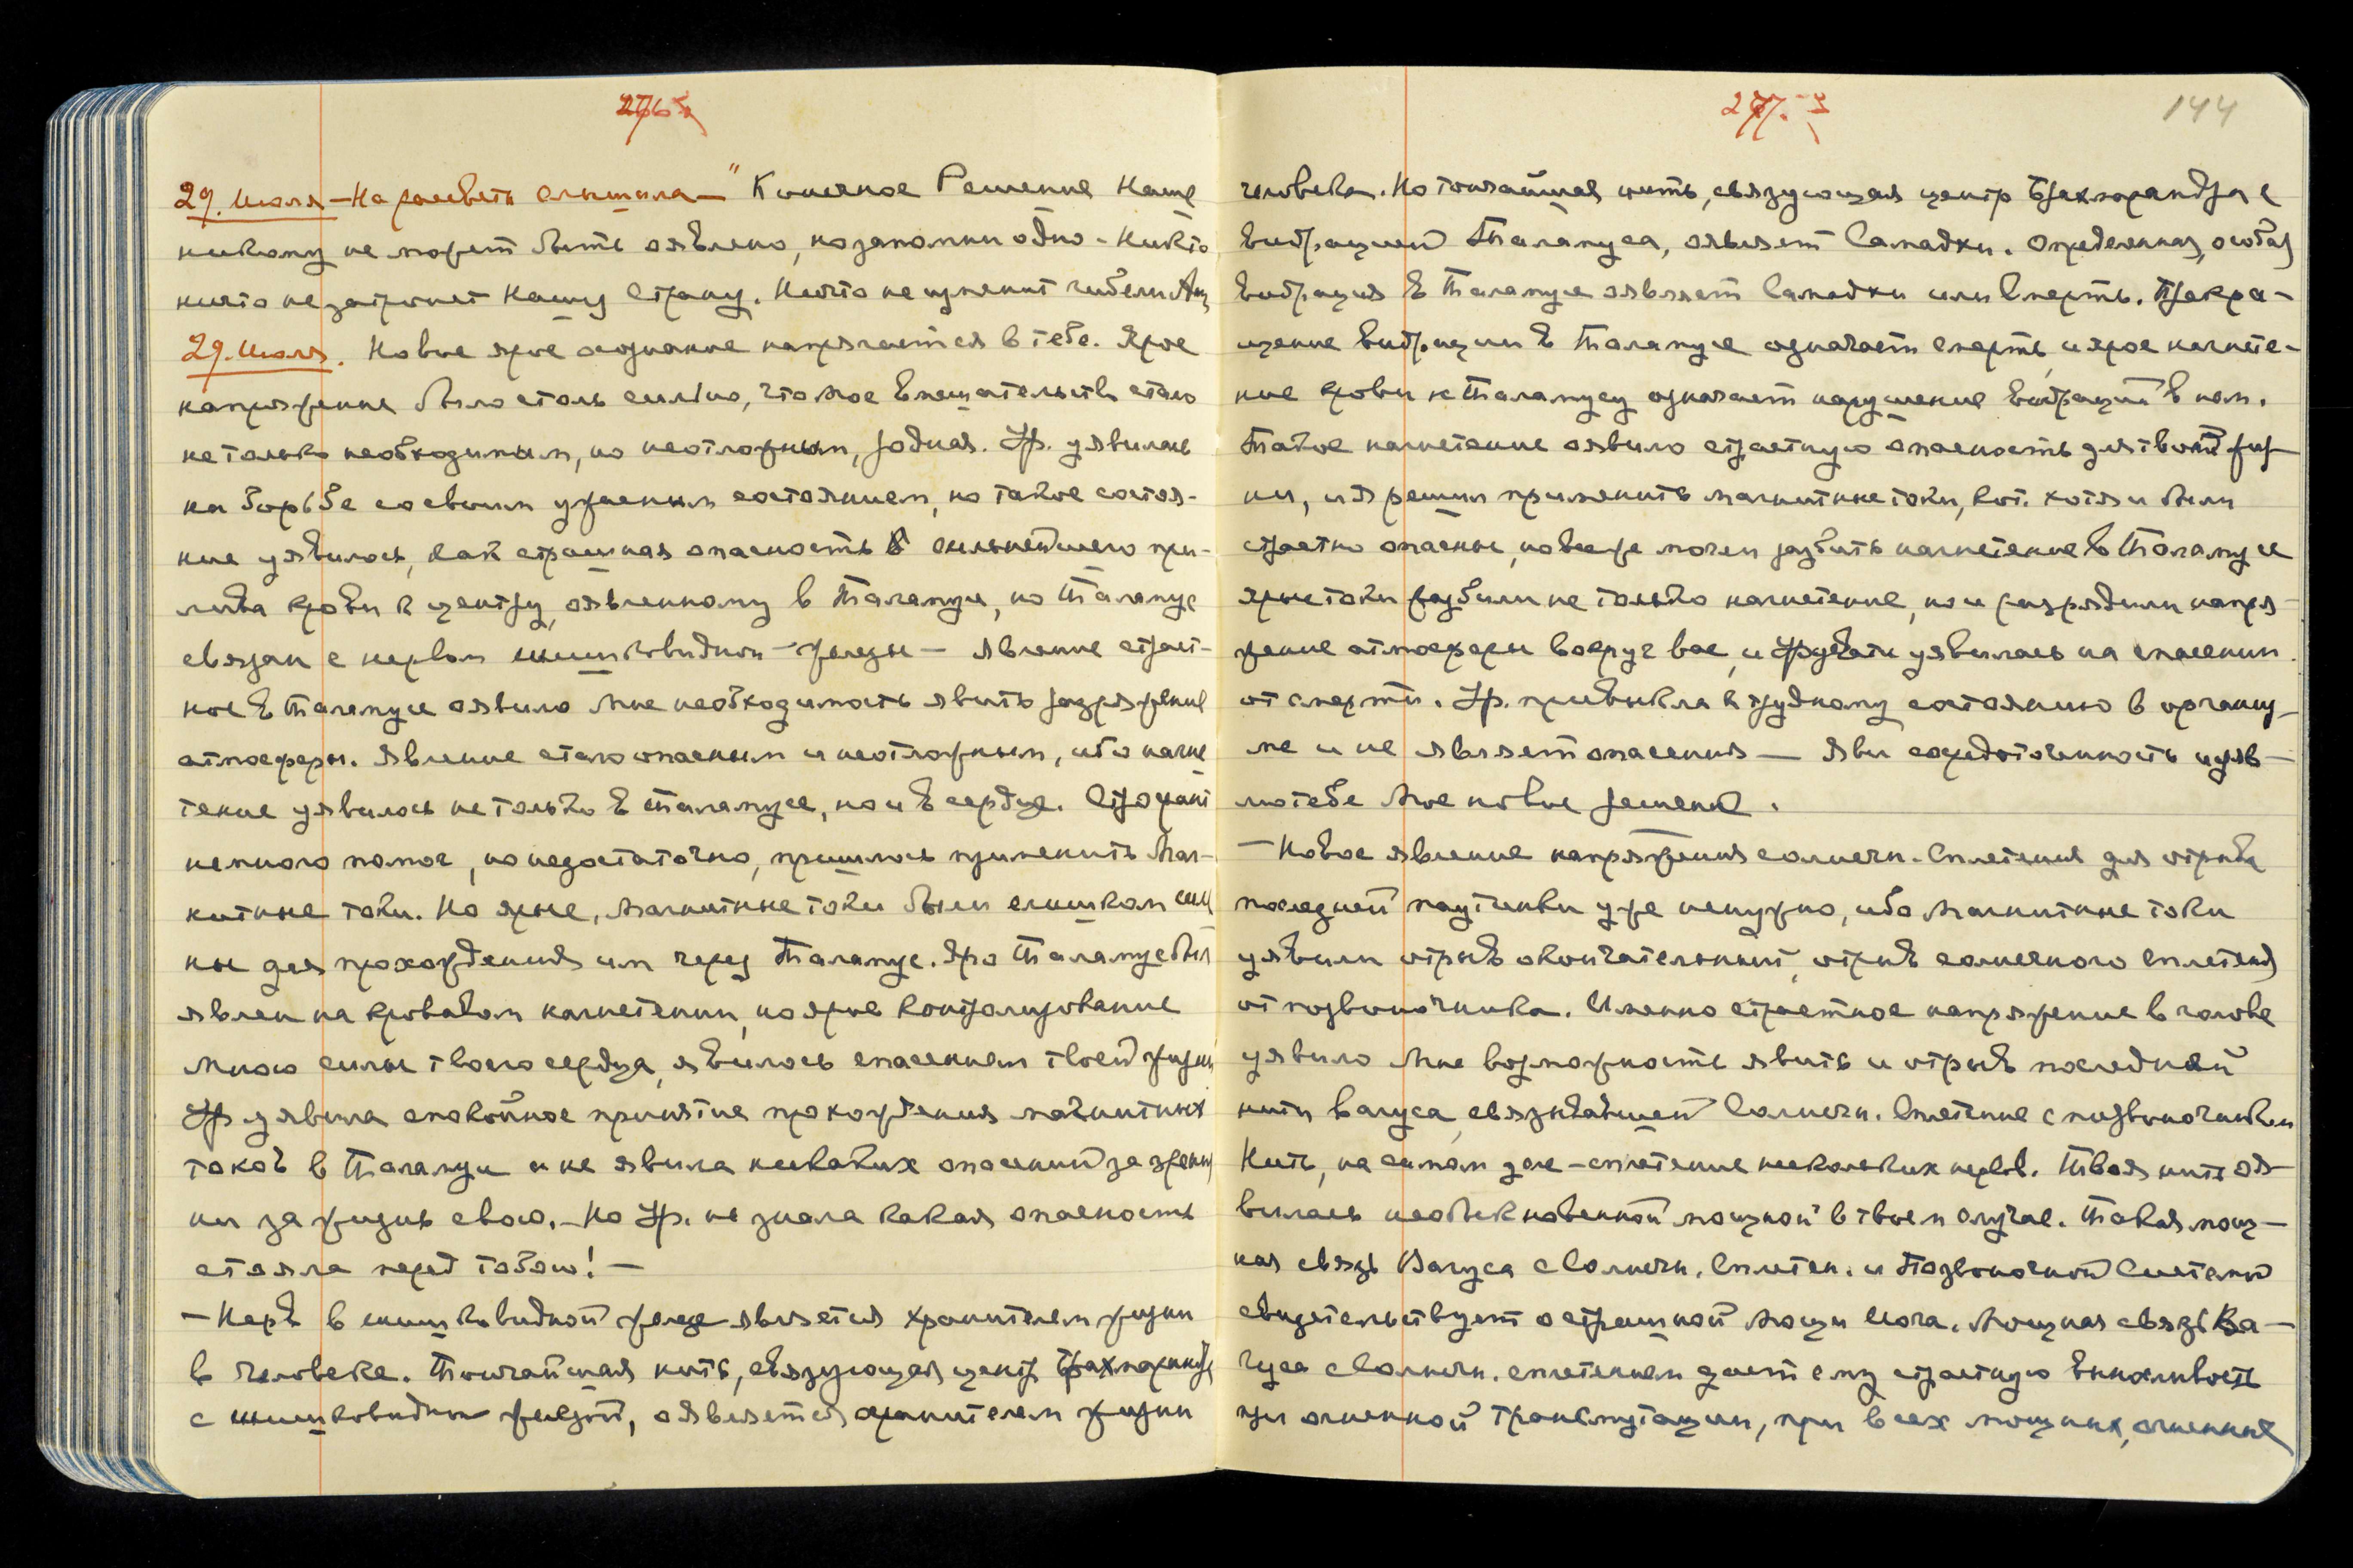 276
29. Июля – На рассвете слышала – "Конечное Решение Наше
никому не может быть явлено, но запомни одно – Никто
ничто не затронет Нашу Страну. Ничто не изменит гибели
29. Июля. Новое ярое осознание напрягается в тебе. Ярое
напряжение было столь сильно, что Мое вмешательство стало
не только необходимым, но неотложным, родная. Ур. уявилась
на борьбе со своим ужасным состоянием, но такое состоя-
ние уявилось, как страшная опасность сильнейшего при-
лива крови к центру, оявленному в Таламусе, но Таламус
связан с нервом шишковидной – железы – явление страст-
ное в Таламусе оявило Мне необходимость явить разряжение
атмосферы. Явление стало опасным и неотложным, ибо нагне
тение уявилось не только в Таламусе, но и в сердце. Строфант
немного помог, но недостаточно, пришлось применить Маг-
нитные токи. Но ярые, Магнитные токи были слишком силь
ны для прохождения им через Таламус. Яро Таламус был
явлен на кровавом нагнетении, но ярое контролирование
Мною силы твоего сердца, явилось спасением твоей жизни
Ур. уявила спокойное принятие прохождения магнитных
токов в Таламусе и не явила никаких опасений за зрение
ни за жизнь свою. – Но Ур. не знала какая опасность
стояла перед тобою! –
– Нерв в шишковидной железе является хранителем жизни
в человеке. Тончайшая нить, связующая центр Брахмарандры
с шишковидной железой, оявляется хранителем жизни
277.
144
человека. Но тончайшая нить, связующая центр Брахмарандры с
вибрацией Таламуса, оявляет Самадхи. Определенная, особая
вибрация в Таламусе оявляет Самадхи или Смерть. Прекра-
щение вибрации в Таламусе означает смерть, и ярое нагнете-
ние крови к Таламусу означает нарушение вибраций в нем.
Такое нагнетение оявило страстную опасность для твоей жиз-
ни, и Я решил применить магнитные токи, кот. хотя и были
страстно опасны, но все же могли разбить нагнетение в Таламусе
Ярые токи разбили не только нагнетение, но и разрядили напря-
жение атмосферы вокруг вас, и Урусвати уявилась на спасении
от смерти. Ур. привыкла к трудному состоянию в организ-
ме и не являет опасения – яви сосредоточенность и уяв-
лю тебе Мое новое решение.
– Новое явление напряжения солнечн. Сплетения для отрыва
последней паутинки уже ненужно, ибо Магнитные токи
уявили отрыв окончательный, отрыв солнечного сплетения
от позвоночника. Именно страстное напряжение в голове
уявило Мне возможность явить и отрыв последней
нити вагуса, связывавшей Солнечн. Сплетение с позвоночником
Нить, на самом деле – сплетение нескольких нервов. Твоя нить оя-
вилась необыкновенной мощной в твоем случае. Такая мощ-
ная связь Вагуса с Солнечн. Сплетен. и Позвоночной Системой
свидетельствует о страшной Мощи Йога. Мощная связь Ва-
гуса с Солнечн. сплетением дает ему страстную выносливость
при огненной трансмутации, при всех мощных, огненных